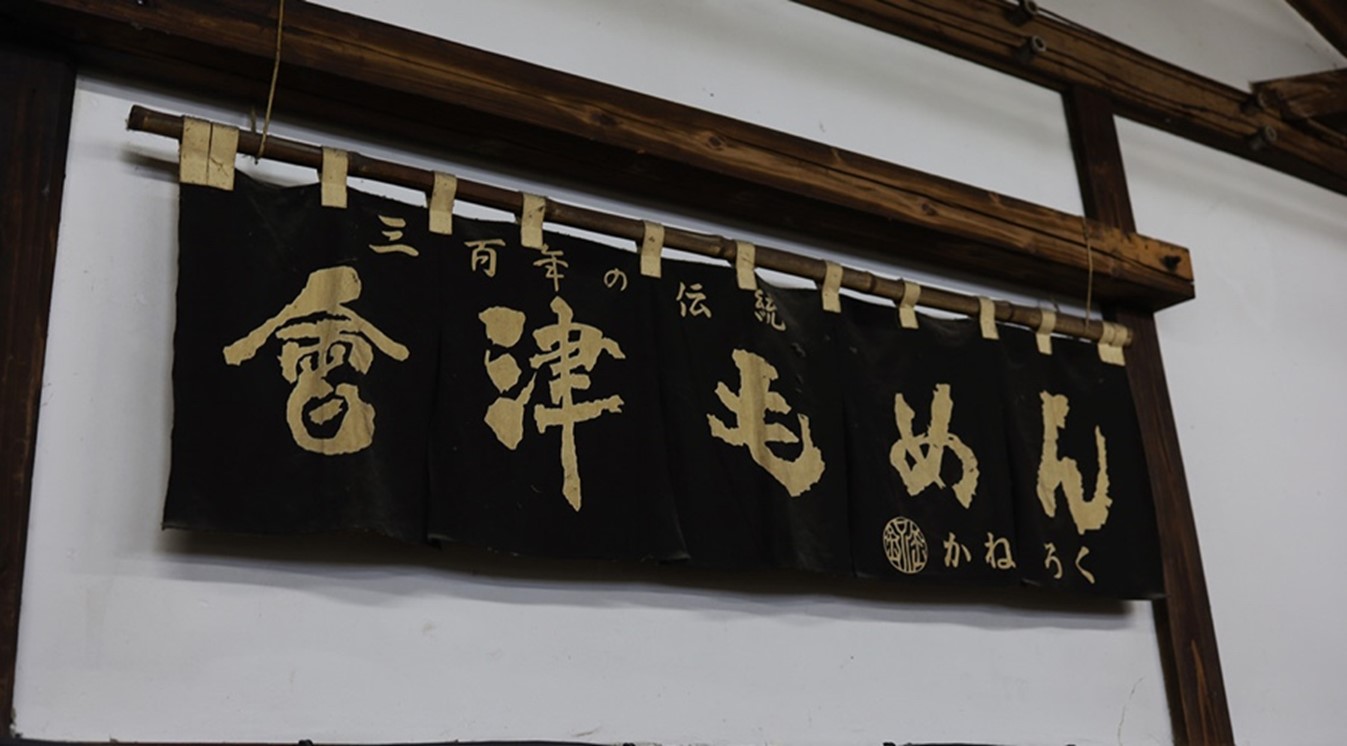 三百年の伝統
會津もめん
かねろく